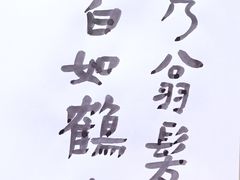 乃翁髮
白如鶴